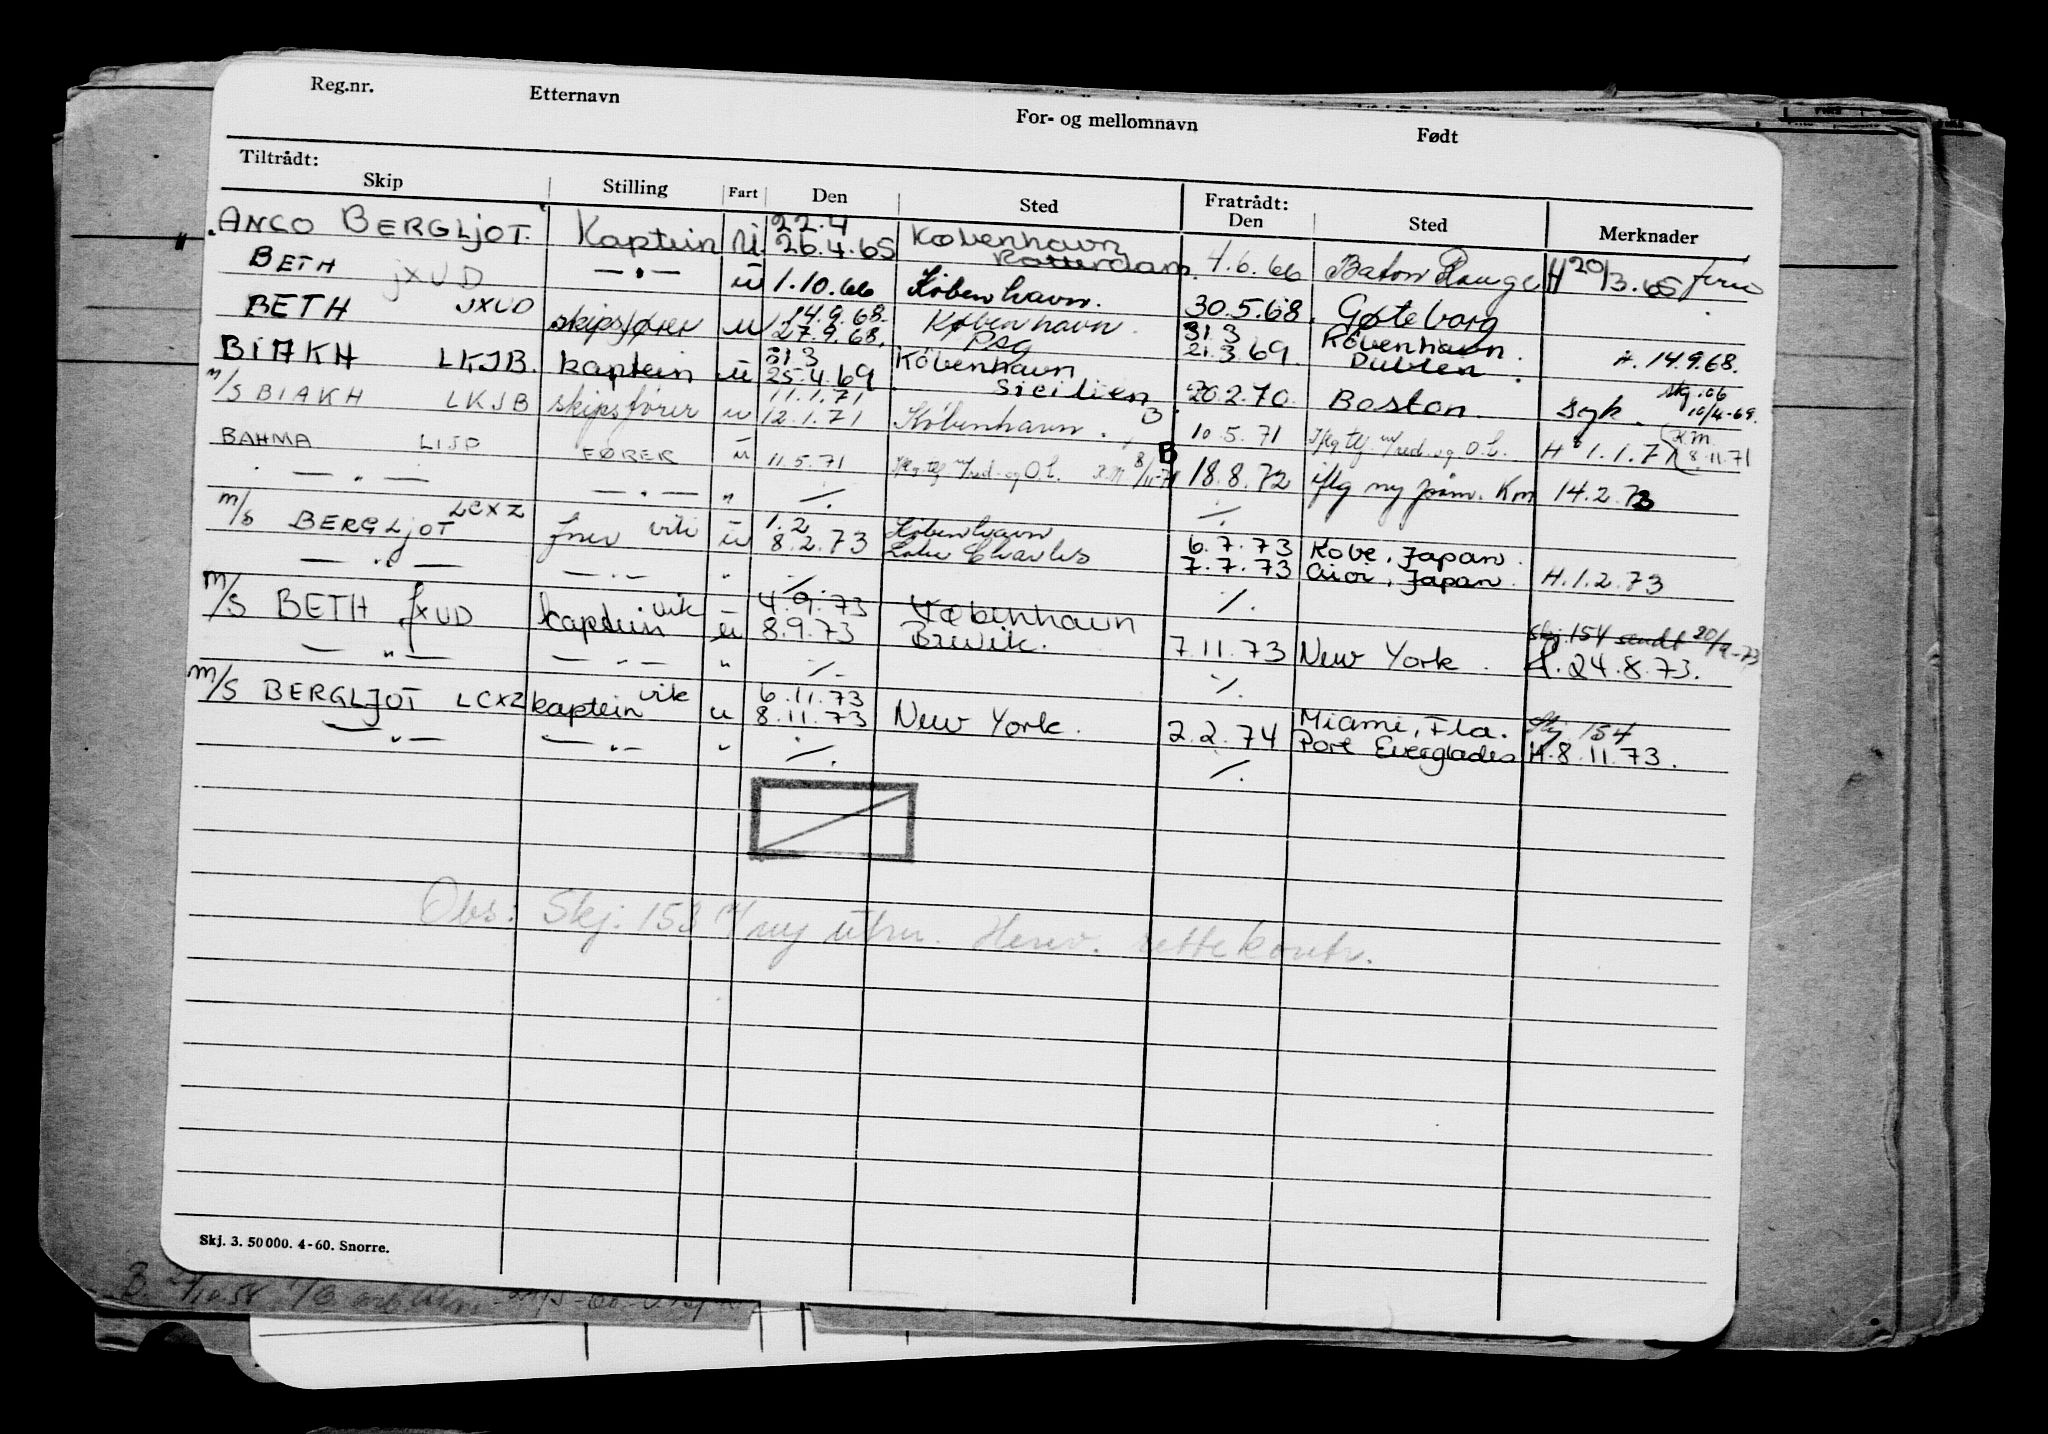 Reg.nr. Etternavn For- og mellomnavn Født
Tiltrådt:
Skip Stilling Fart Den Sted Fratrådt: Den Sted Merknader
ANCO BERGLJOT Kaptein U 22.4 26.4.65 København Rotterdam. 4.6.66 Baton Rouge H 20/3.65
BETH JXUD — " — u 1.10.66 København. 30.5.68. Gøteborg
BETH JXUD skipsfører u 14.9.68. 27.9.68. København. Psg 31.3 21.3.69. København. Dublin. H. 14.9.68.
BIAKH LKJB. kaptein u 31.3 25.4.69. København Sicilien. 20.2.70. Boston. syk. Skj. 06 10/4-69.
M/S BIAKH LKJB skipsfører u 11.1.71 12.1.71 København. 10.5.71 H 1.1.71 K.M. 8.11.71
BAHMA LISD FØRER u 11.5.71 B 18.8.72 iflg ny påm. Km 14.2.73
— " — — " — " ·/. ·/.
M/S BERGLJOT LCXZ fører vik u 1.2 8.2.73 København Lake Charles 6.7.73 7.7.73 Kobe, Japan. Aioi, Japan. H.1.2.73
— " — — " — " ·/. ·/.
M/S BETH JXUD kaptein vik u 4.9.73 8.9.73 København Brevik. 7.11.73 New York. Skj. 154 sendt 20/9-73 H. 24.8.73.
— " — — " — " ·/. ·/.
M/S BERGLJOT LCXZ kaptein vik u 6.11.73 8.11.73 New York. 2.2.74 Miami, Fla. Port Everglades Skj 154 H.8.11.73.
— " — — " — " ·/. ·/.
Obs: Skj. 153 m/ny utrn. Henv. rettekontr.
Skj. 3. 50 000. 4-60. Snorre.